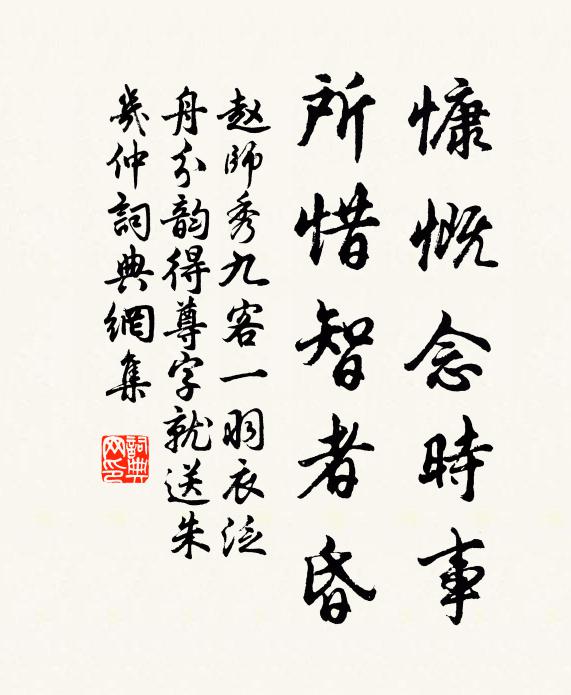 慷慨念時事
所惜智者昏
赵師秀九客一羽衣泛
舟分韵得尊字就送朱
幾仲詞典網集
詞典网印